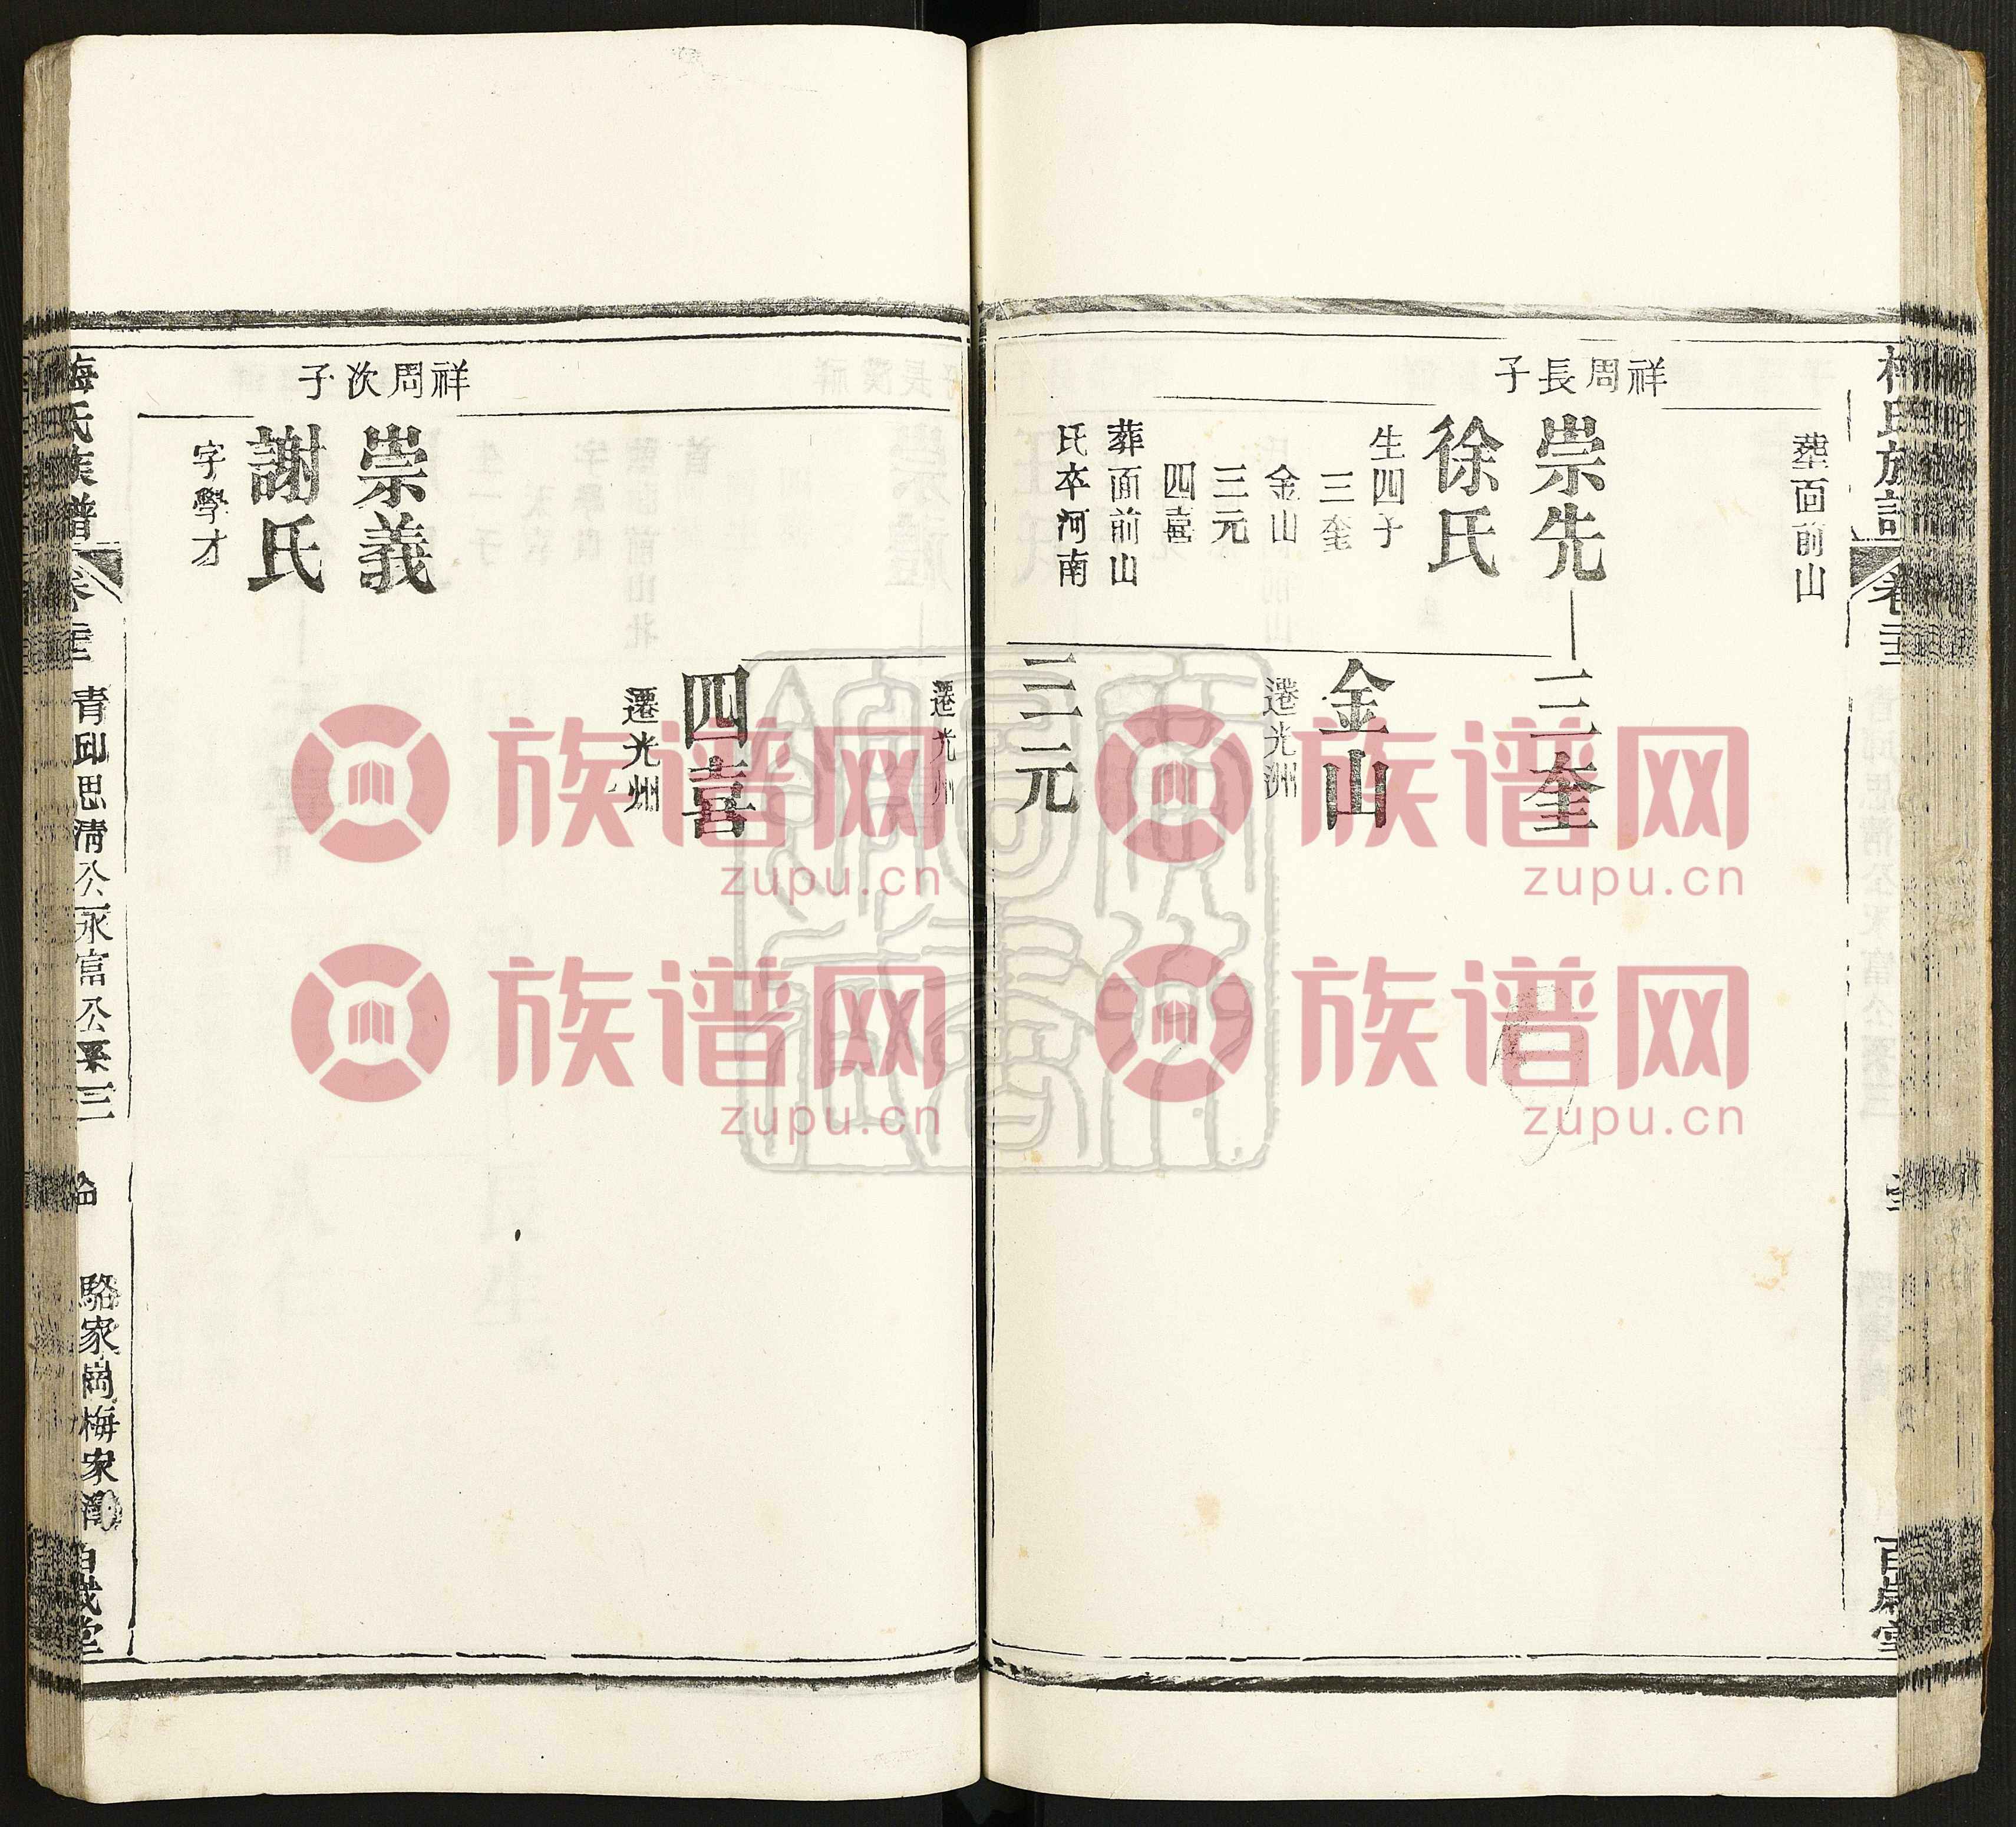 葬面前山
祥周長子
崇先
徐氏
生四子
三奎
金山
三元
四喜
葬面前山
氏卒河南
三奎
金山
遷光洲
三元
遷光州
四喜
遷光州
祥周次子
崇義
謝氏
字學才
梅氏族譜
青邱思清公永富公系三
駱家崗梅家灣
百歲堂
族谱网
zupu.cn
族谱网
zupu.cn
族谱网
zupu.cn
族谱网
zupu.cn